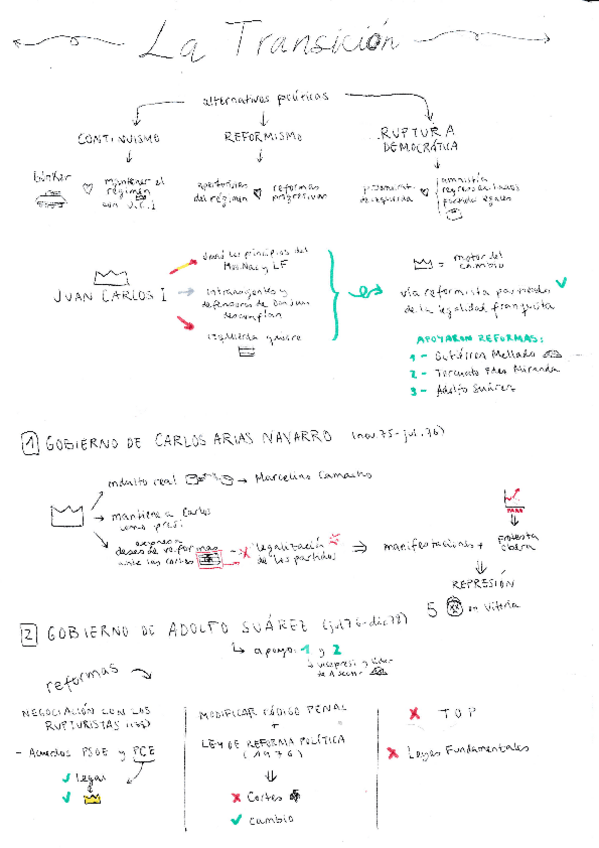 La Transición
alternativas políticas
CONTINUISMO
REFORMISMO
RUPTURA
DEMOCRÁTICA
búnker
mantener el
régimen
con J.C.I
aperturistas
del régimen
reformas
progresivas
amnistía
JUAN CARLOS I
Juró los principios del
Mov.Nac y LF
intransigentes y
defensores de Don Juan
desconfían
izquierda quiere
= motor del
cambio
vía reformista
de la legalidad franquista
APOYARON REFORMAS:
1 - Gutiérrez Mellado
2 - Torcuato Fdez Miranda
3 - Adolfo Suárez
1 GOBIERNO DE CARLOS ARIAS NAVARRO (nov.75-jul.76)
indulto real → Marcelino Camacho
mantiene a Carlos
como presi
deseo de reformas
ante las cortes
X legalización
de los partidos
⇒ manifestaciones +
PARO
protesta
obrera
REPRESIÓN
5 en Vitoria
2 GOBIERNO DE ADOLFO SUÁREZ (jul76-dic78)
apoyo: 1 y 2
reformas
NEGOCIACIÓN CON LOS
RUPTURISTAS
- Acuerdos PSOE y PCE
✓ legal
✓
MODIFICAR CÓDIGO PENAL
+
LEY DE REFORMA POLÍTICA
(1976)
X Cortes
✓ cambio
X TOP
X Leyes Fundamentales